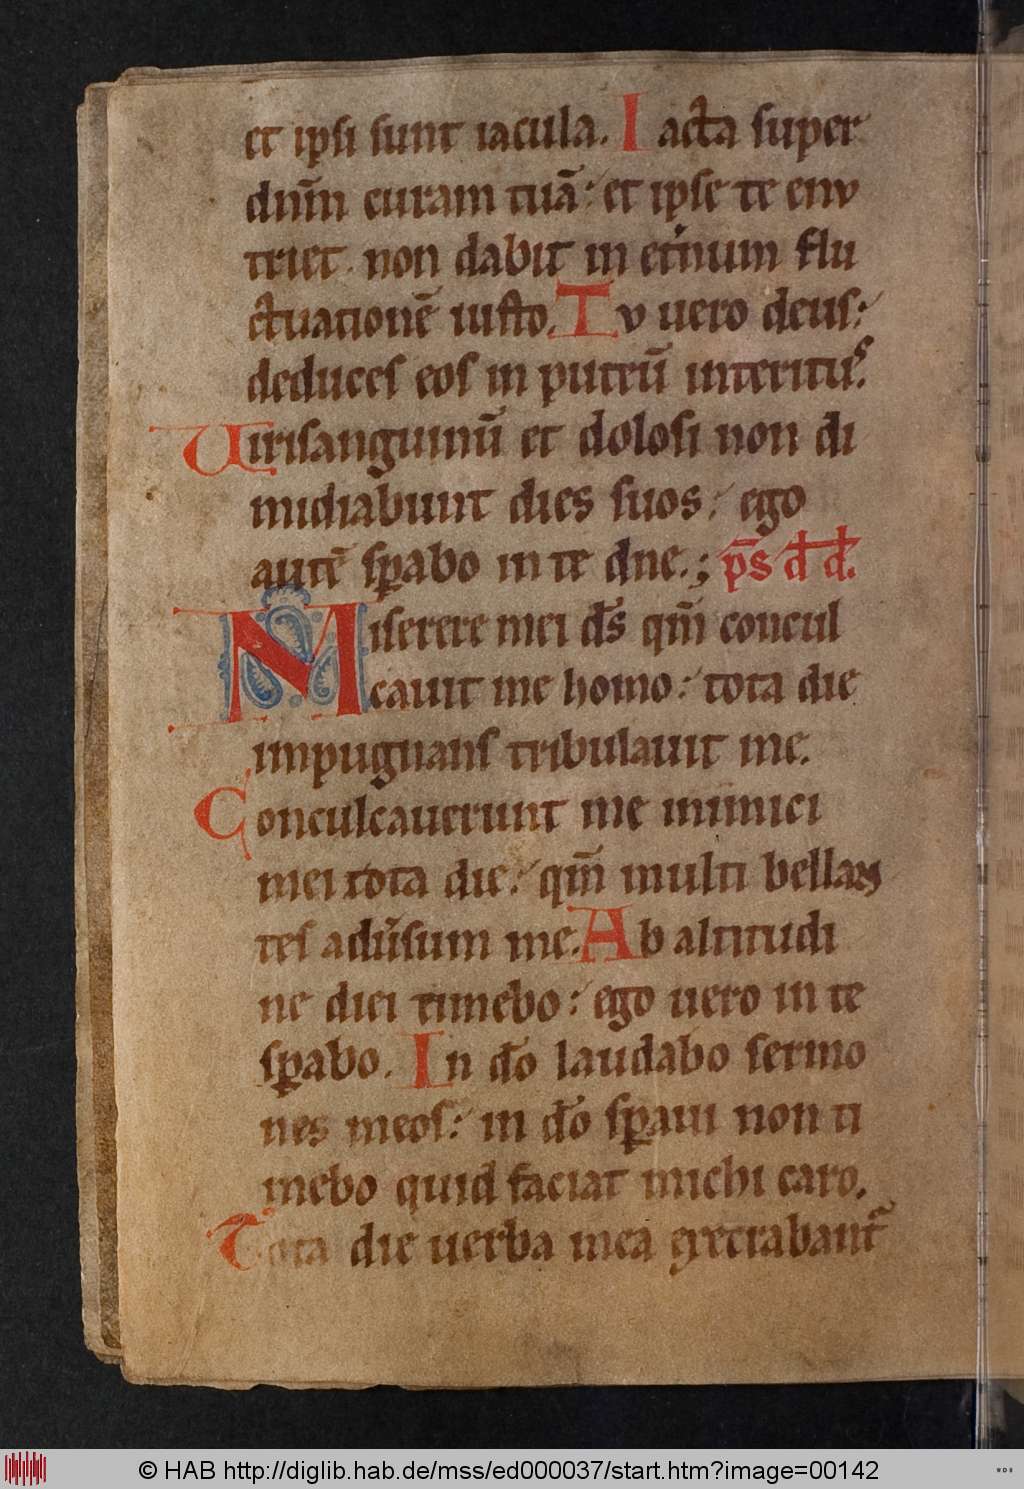 et ipsi sunt iacula. Iacta super
dñm curam tuã: et ipse te enu
triet. non dabit in etnum flu
ctuationẽ iusto. Tu uero deus:
deduces eos in puteũ interitus.
Uirisanguinũ et dolosi non di
midiabunt dies suos: ego
autẽ spabo in te dne.; ps dd.
Miserere mei ds qm̃ concul
cauit me homo: tota die
impugnans tribulauit me.
Conculcauerunt me inimici
mei tota die: qm̃ multi bellan
tes adusum me. Ab altitudi
ne diei timebo: ego uero in te
spabo. In do laudabo sermo
nes meos: in do spaui non ti
mebo quid faciat michi caro.
Tota die uerba mea execrabant
© HAB http://diglib.hab.de/mss/ed000037/start.htm?image=00142